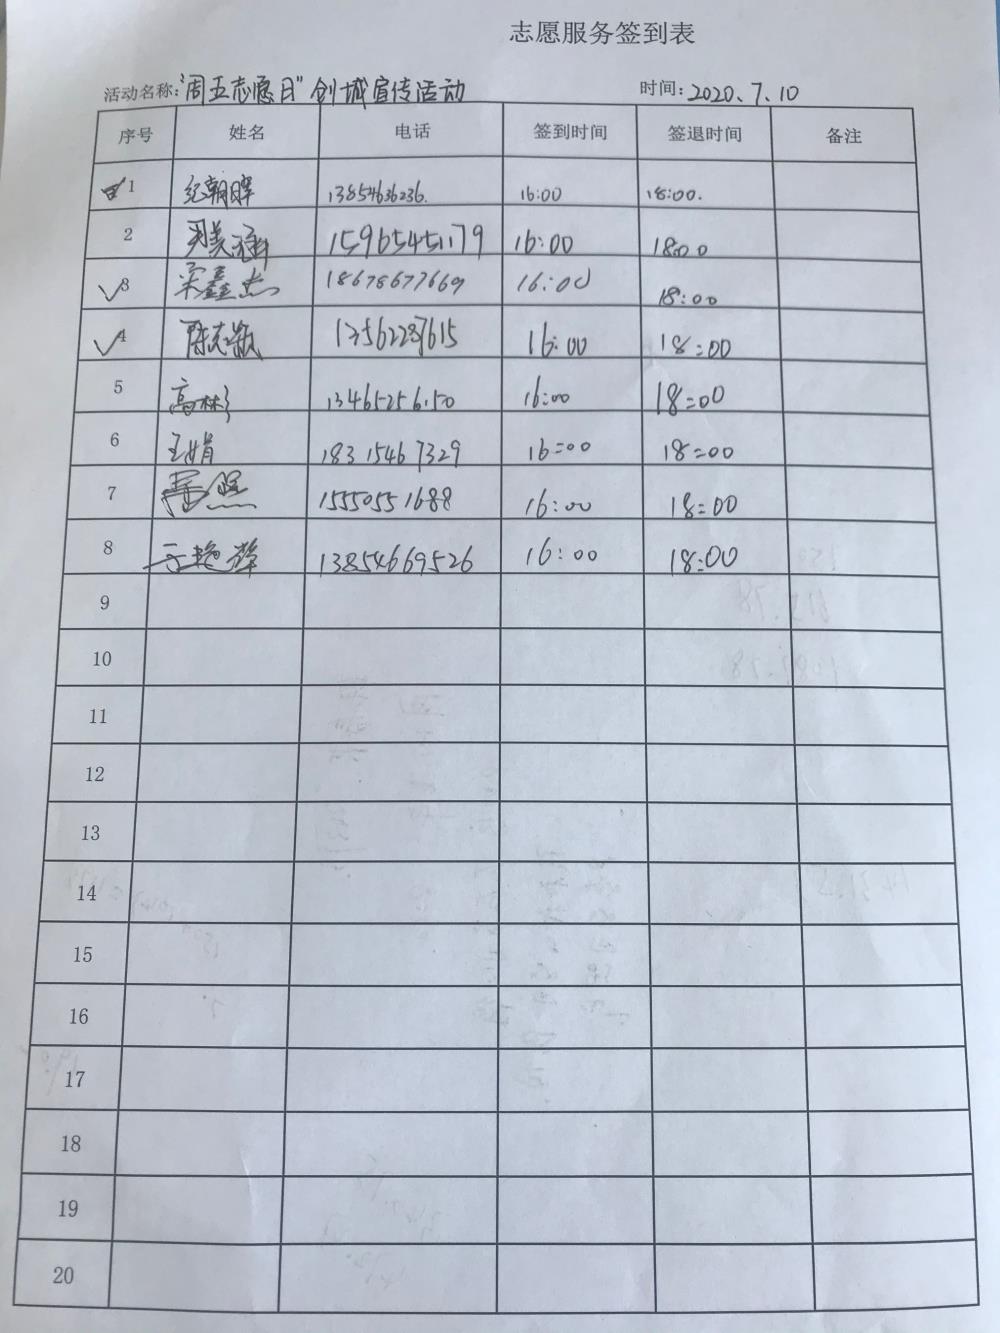 志愿服务签到表
活动名称：“周五志愿日”创城宣传活动 时间：2020、7、10
序号 姓名 电话 签到时间 签退时间 备注
1 纪朝晖 13854636236. 16:00 18:00.
2 15965451179 16:00 18:00
3 宋鑫杰 18678677669 16:00 18:00
4 陈志颖 16:00 18:00
5 高彬彬 13465256150 16:00 18:00
6 王娟 18315467329 16:00 18:00
7 15550551688 16:00 18:00
8 于艳萍 13854669526 16:00 18:00
9
10
11
12
13
14
15
16
17
18
19
20